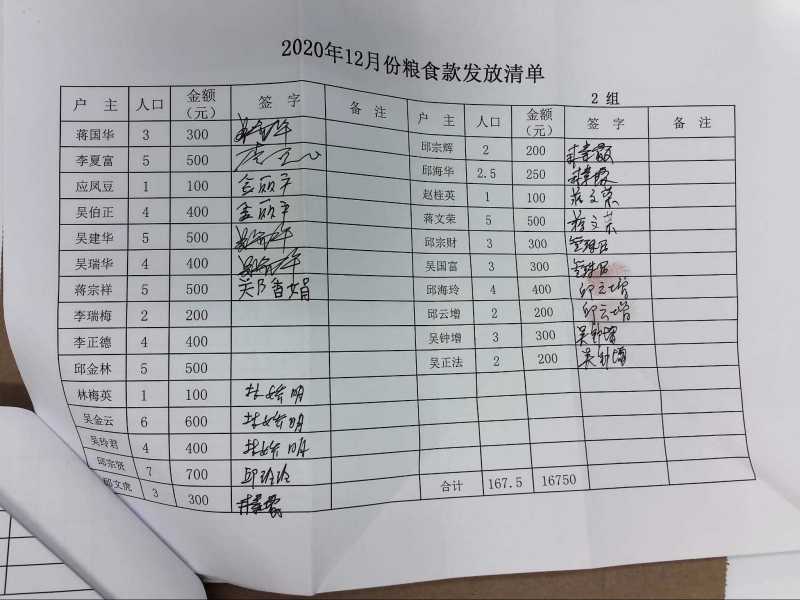 2020年12月份粮食款发放清单
2 组
户 主 人口 金额（元） 签 字 备 注
蒋国华 3 300
李夏富 5 500
应凤豆 1 100 金丽平
吴伯正 4 400 金丽平
吴建华 5 500
吴瑞华 4 400
蒋宗祥 5 500
李瑞梅 2 200
李正德 4 400
邱金林 5 500
林梅英 1 100
吴金云 6 600
吴玲君 4 400
邱宗贤 7 700 邱玲玲
邱文虎 3 300
户 主 人口 金额（元） 签 字 备 注
邱宗辉 2 200
邱海华 2.5 250
赵桂英 1 100 蒋文荣
蒋文荣 5 500 蒋文荣
邱宗财 3 300
吴国富 3 300
邱海玲 4 400 邱云增
邱云增 2 200 邱云增
吴钟增 3 300 吴钟增
吴正法 2 200 吴钟增
合计 167.5 16750